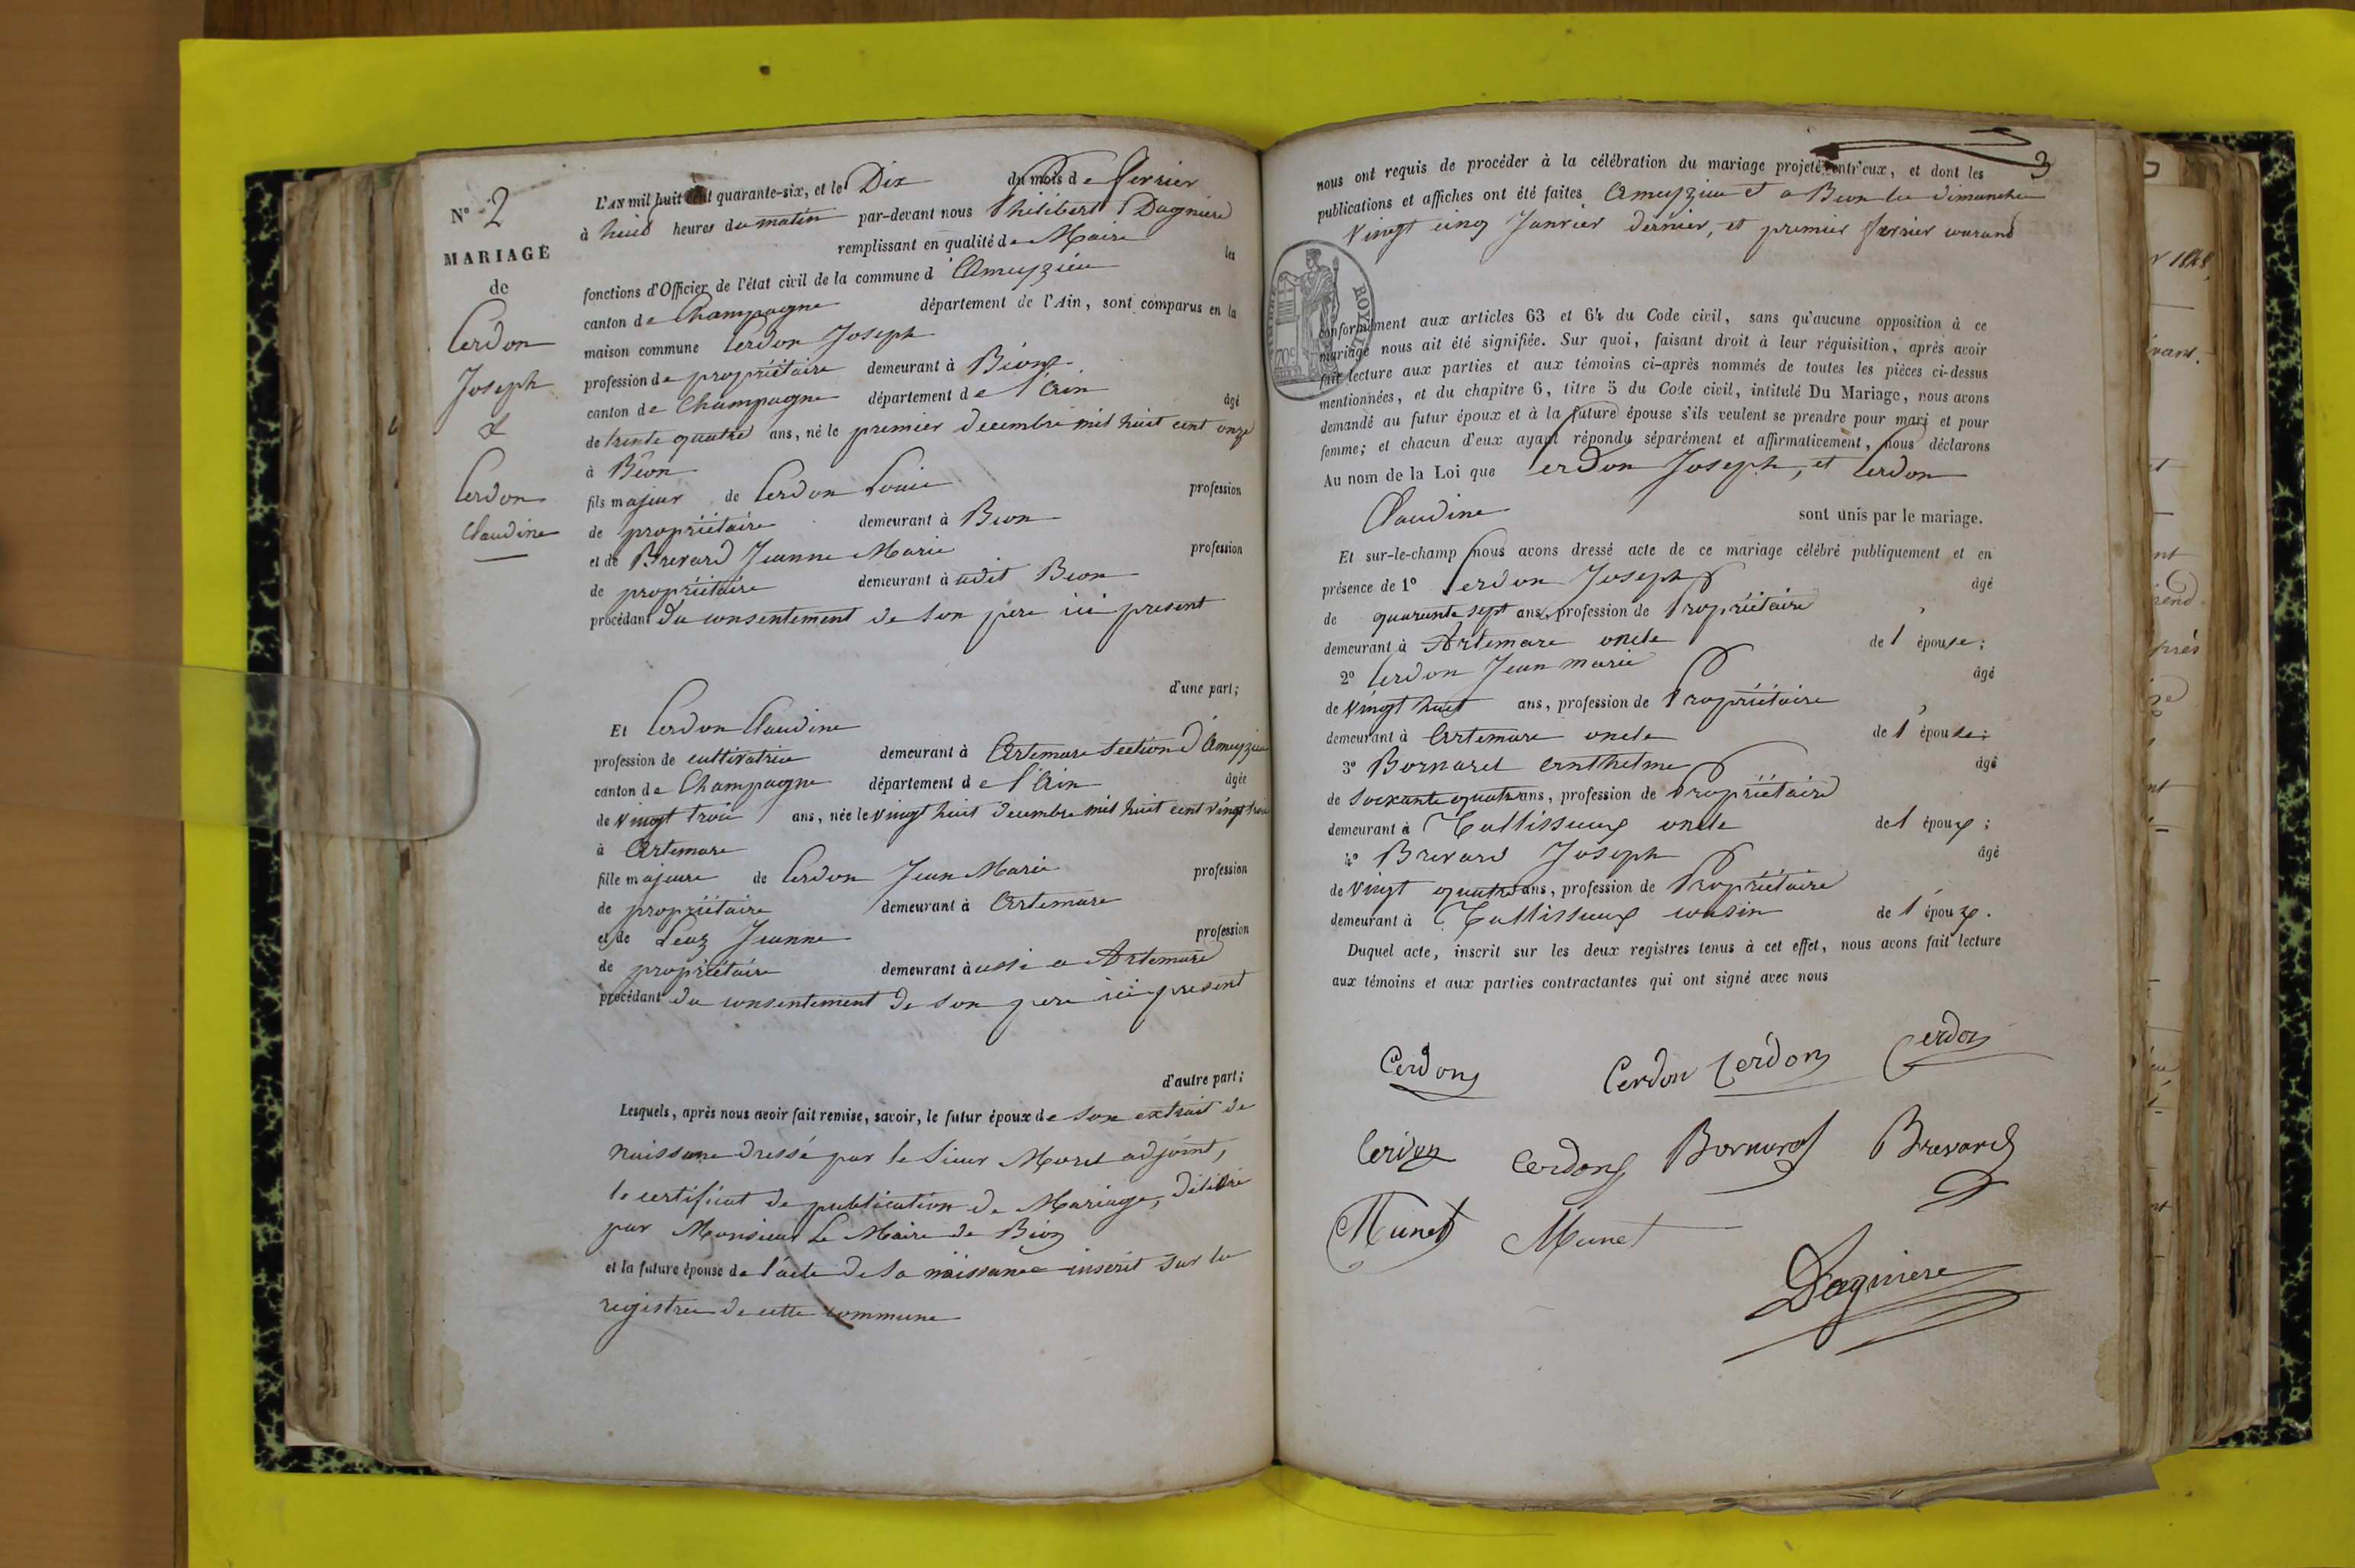 N° 2
MARIAGE
de
Cerdon
Joseph
&
Cerdon
Claudine
L'AN mil huit cent quarante-six, et le Dix du mois de fevrier
à huit heures du matin par-devant nous Philibert Dagniere
remplissant en qualité de Maire les
fonctions d'Officier de l'état civil de la commune d'Ameyzieu
canton de Champagne département de l'Ain, sont comparus en la
maison commune Cerdon Joseph
profession de propriétaire demeurant à Béon
canton de Champagne département de l'Ain âgé
de trente quatre ans, né le premier decembre mil huit cent onze
à Béon
fils majeur de Cerdon Louis profession
de propriétaire demeurant à Beon
et de Brevard Jeanne Marie profession
de propriétaire demeurant à udit Beon
procédant du consentement de son pere ici present
d'une part;
Et Cerdon Claudine
profession de cultivatrice demeurant à Artemare section d'Ameyzieu
canton de Champagne département de l'Ain âgée
de vingt trois ans, née le vingt huit decembre mil huit cent vingt trois
à Artemare
fille majeure de Cerdon Jean Marie profession
de propriétaire demeurant à Artemare
et de Jeanne profession
de propriétaire demeurant à ussi a Artemare
procédant du consentement de son pere ici present
d'autre part;
Lesquels, après nous avoir fait remise, savoir, le futur époux de son extrait de
naissance dressé par le Sieur adjoint,
le certificat de publication de Mariage, délivré
par Monsieur Le Maire de Béon
et la future épouse de l'acte de sa naissance inscrit sur le
registre de cette commune
3
nous ont requis de procéder à la célébration du mariage projeté entr'eux, et dont les
publications et affiches ont été faites Ameyzieu et a Beon les dimanches
vingt cinq Janvier dernier, et premier fevrier courant
TIMBRE ROYAL
70c
conformément aux articles 63 et 64 du Code civil, sans qu'aucune opposition à ce
mariage nous ait été signifiée. Sur quoi, faisant droit à leur réquisition, après avoir
fait lecture aux parties et aux témoins ci-après nommés de toutes les pièces ci-dessus
mentionnées, et du chapitre 6, titre 5 du Code civil, intitulé Du Mariage, nous avons
demandé au futur époux et à la future épouse s'ils veulent se prendre pour mari et pour
femme; et chacun d'eux ayant répondu séparément et affirmativement, nous déclarons
Au nom de la Loi que Cerdon Joseph, et Cerdon
Claudine sont unis par le mariage.
Et sur-le-champ nous avons dressé acte de ce mariage célébré publiquement et en
présence de 1° Cerdon Joseph âgé
de quarante sept ans, profession de Propriétaire
demeurant à Artemare oncle de l'épouse;
2° Cerdon Jean marie âgé
de vingt huit ans, profession de Propriétaire
demeurant à Artemare oncle de l'épouse;
3° Bornarel Anthelme âgé
de soixante quatre ans, profession de Propriétaire
demeurant à Tallissieux oncle de l époux;
4° Brevard Joseph âgé
de vingt quatre ans, profession de Propriétaire
demeurant à Tallissieux cousin de l'époux.
Duquel acte, inscrit sur les deux registres tenus à cet effet, nous avons fait lecture
aux témoins et aux parties contractantes qui ont signé avec nous
Cerdon Cerdon Cerdon Cerdon
Cerdon Cerdon Bornarel Brevard
Munet Munet
Dagniere